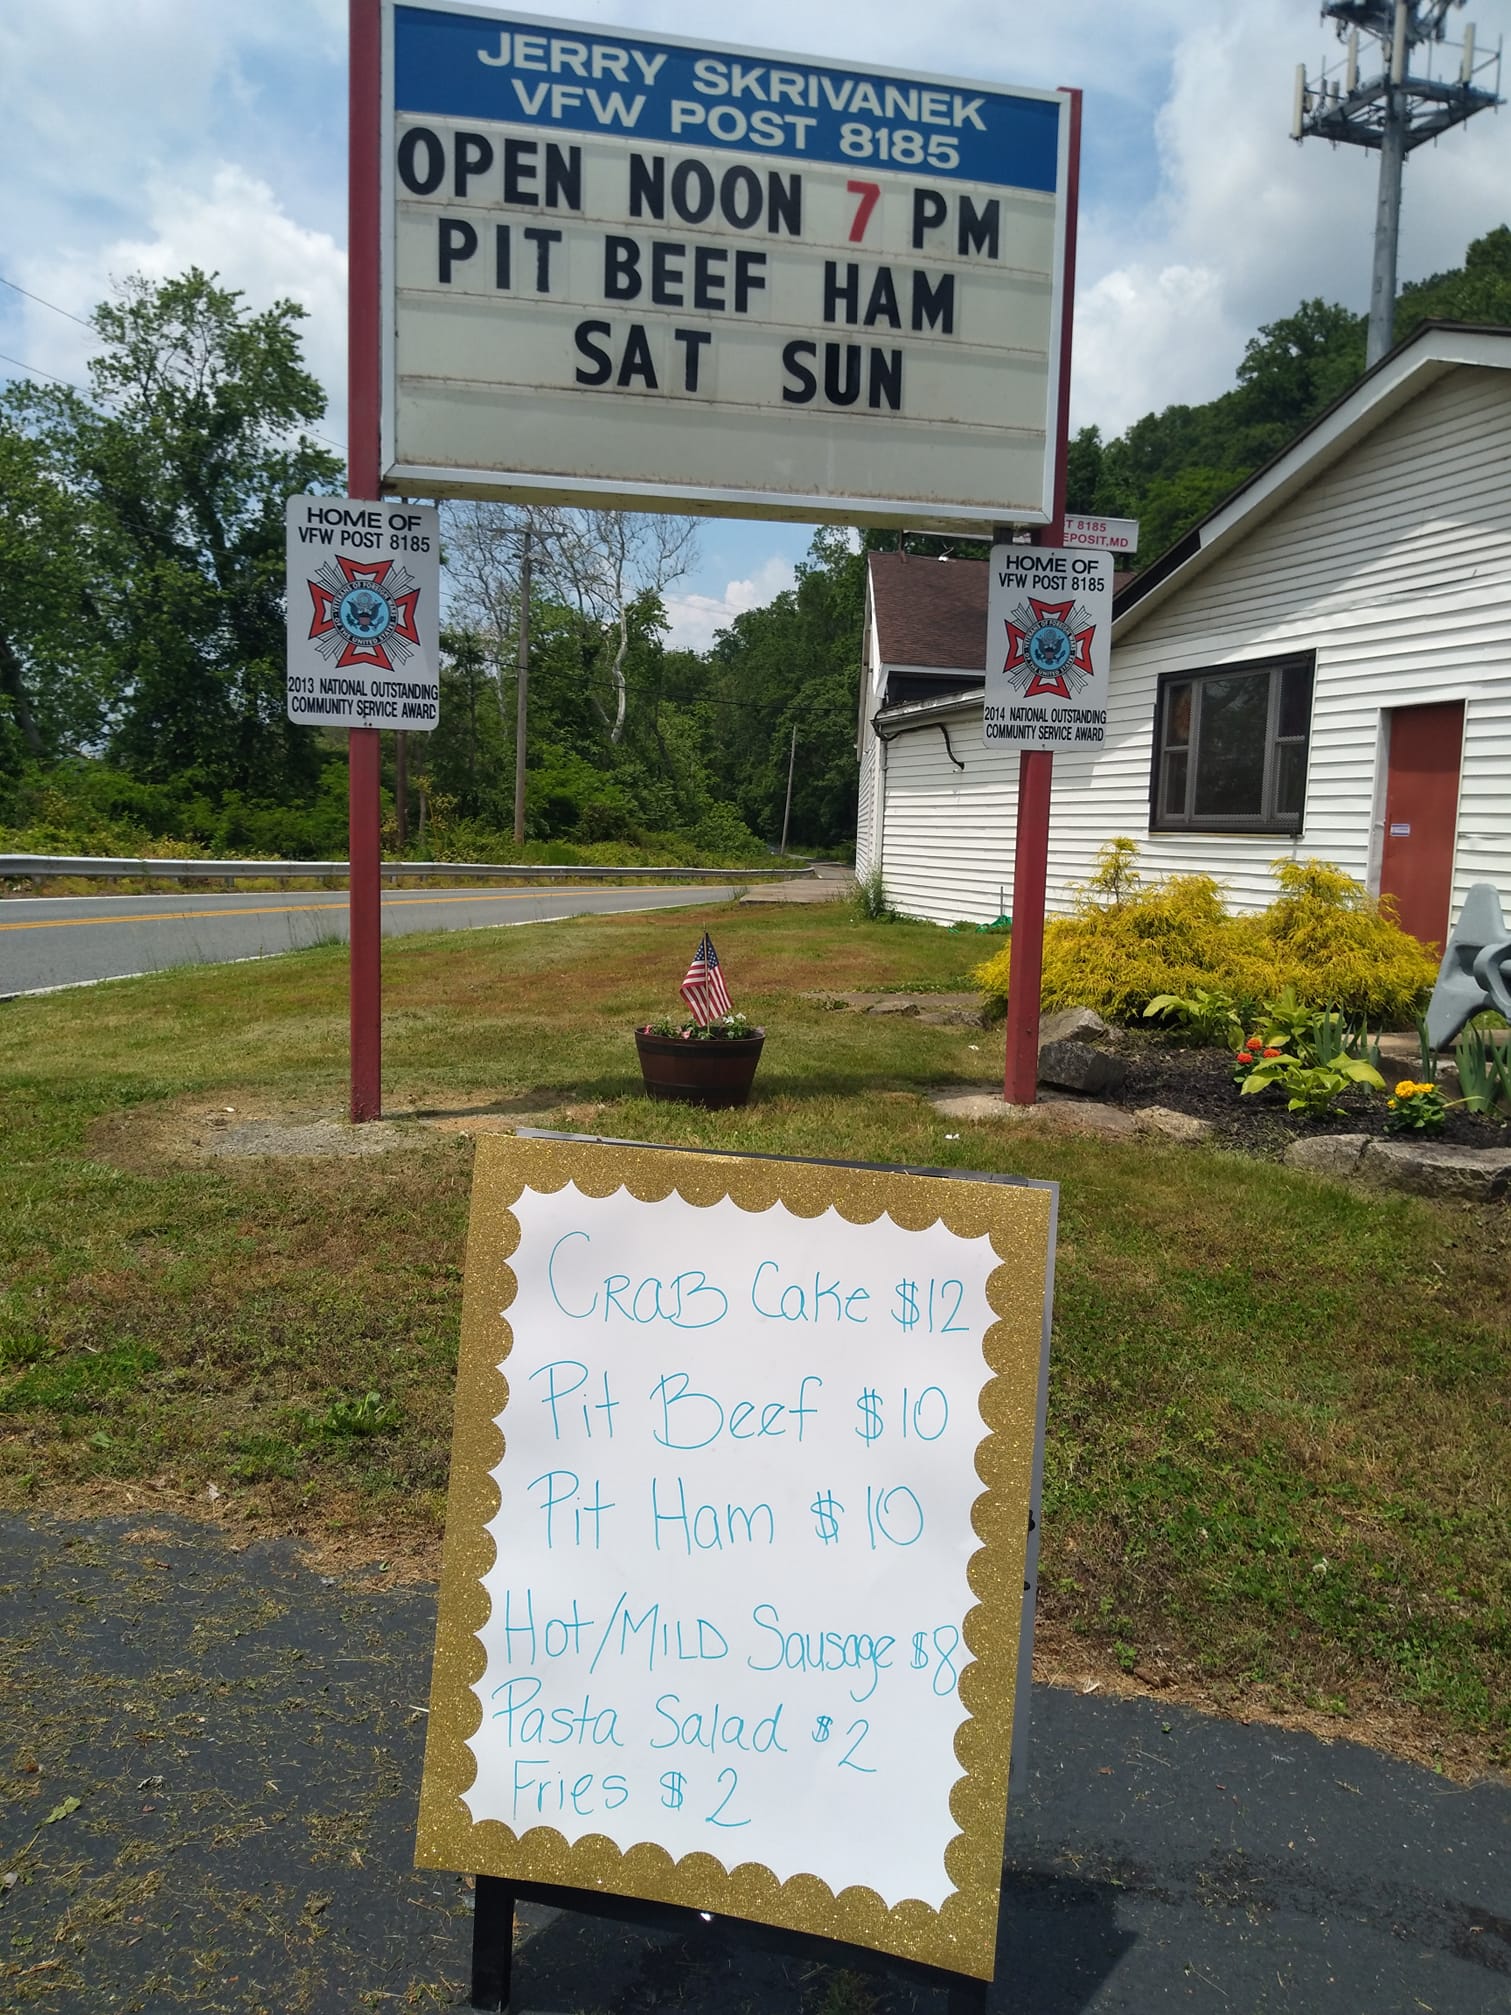 JERRY SKRIVANEK
VFW POST 8185
OPEN NOON 7 PM
PIT BEEF HAM
SAT SUN
HOME OF
VFW POST 8185
2013 NATIONAL OUTSTANDING
COMMUNITY SERVICE AWARD
T 8185
EPOSIT,MD
HOME OF
VFW POST 8185
2014 NATIONAL OUTSTANDING
COMMUNITY SERVICE AWARD
CRAB Cake $12
Pit Beef $10
Pit Ham $10
Hot/MILD Sausage $8
Pasta Salad $2
Fries $2